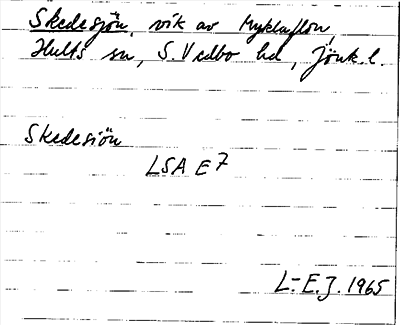 Skedesjön, vik av Mycklaflon,
Hults sn, S. Vedbo hd, Jönk. l.
Skedesiön
LSA E7
L-E.J. 1965